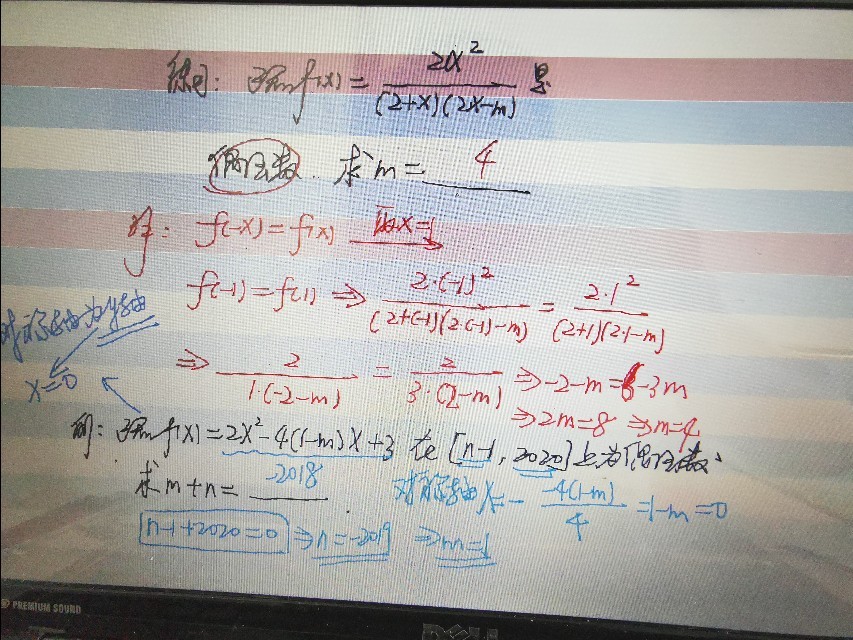 练习: 已知f(x) = 2x² / (2+x)(2x-m) 是
偶函数. 求m = 4
解: f(-x) = f(x) 取x=1
f(-1) = f(1) ⇒ 2·(-1)² / (2+(-1))(2·(-1)-m) = 2·1² / (2+1)(2·1-m)
对称轴为y轴
x=0
⇒ 2 / 1·(-2-m) = 2 / 3·(2-m) ⇒ -2-m = 6-3m
⇒ 2m=8 ⇒ m=4
例: 已知f(x) = 2x²-4(1-m)x+3 在[n-1, 2020]上为偶函数.
求m+n= -2018
对称轴x= - -4(1-m) / 4 =1-m=0
n-1+2020=0 ⇒ n=-2019 ⇒ m=1
PREMIUM SOUND
DELL